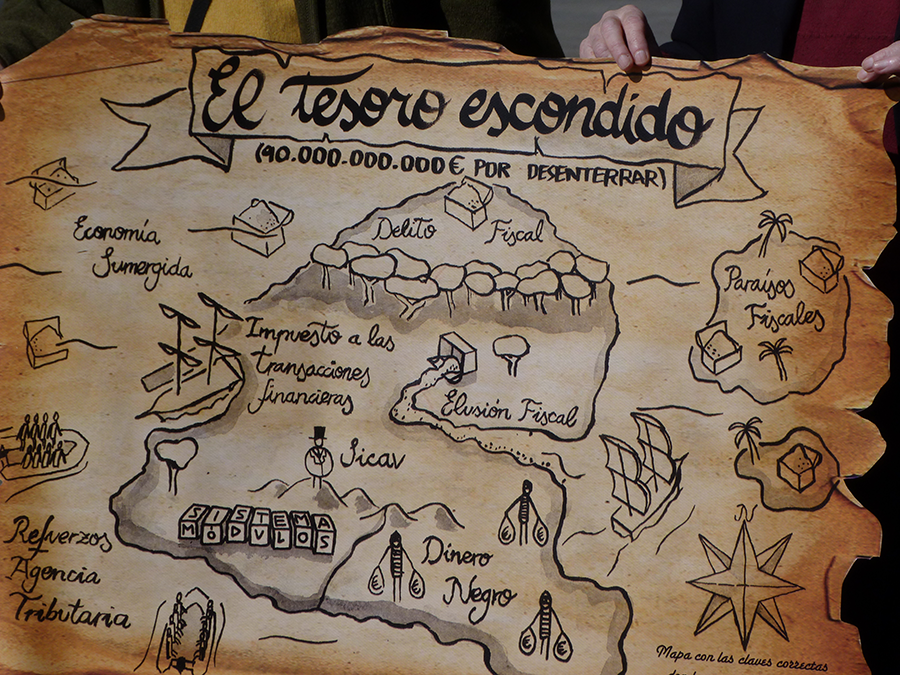 El Tesoro escondido
(40.000.000.000 € POR DESENTERRAR)
Economía
Sumergida
Delito Fiscal
Paraísos
Fiscales
Impuesto a las
transacciones
financieras
Elusión Fiscal
Sicav
SISTEMA
MODULOS
Refuerzos
Agencia
Tributaria
Dinero
Negro
€ €
€ €
€ €
N
Mapa con las claves correctas